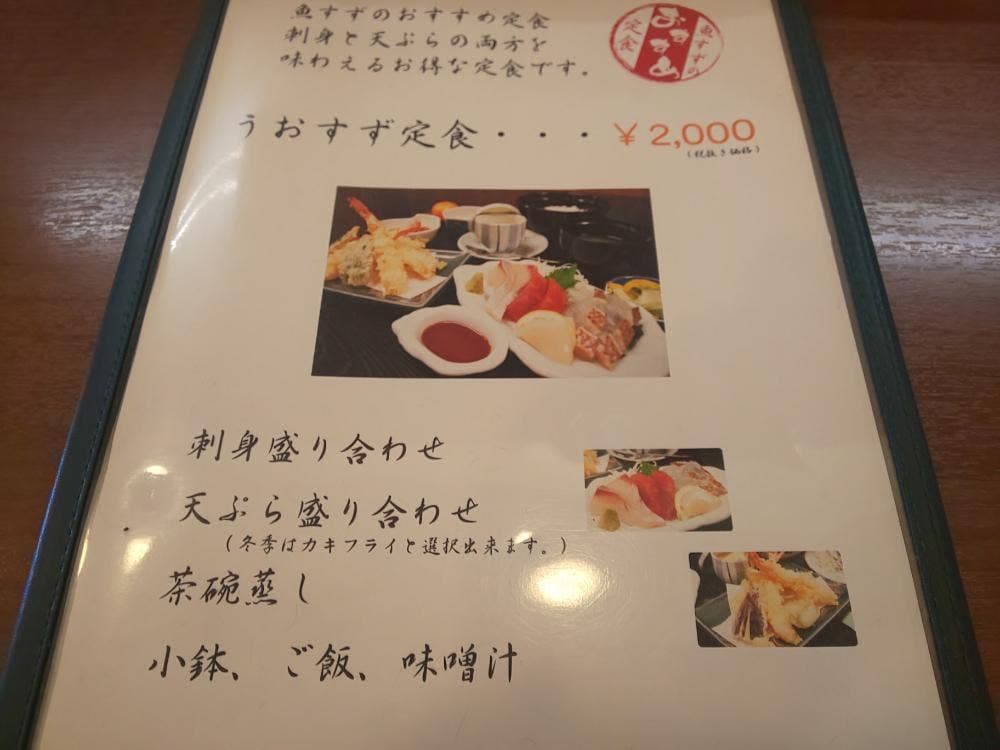 魚すずのおすすめ定食
刺身と天ぷらの両方を
味わえるお得な定食です。
魚すずの
おすすめ
定食
うおすず定食・・・¥2,000
(税抜き価格)
刺身盛り合わせ
天ぷら盛り合わせ
(冬季はカキフライと選択出来ます。)
茶碗蒸し
小鉢、ご飯、味噌汁